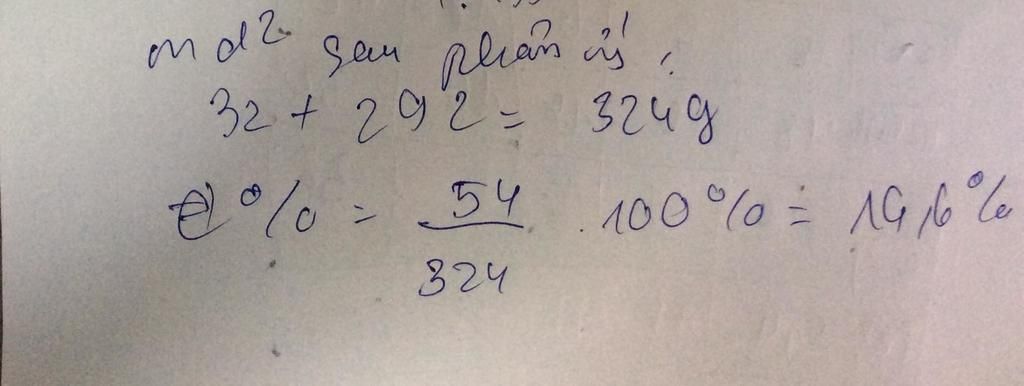 m dd sau phản ứ
32 + 292 = 324g
C% = 54/324 . 100% = 16,6%